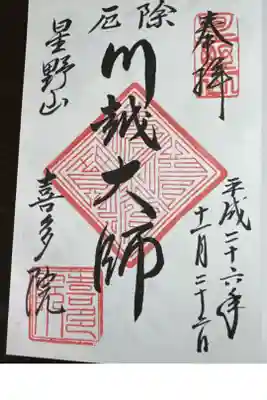 奉拝
平成二十六年
十一月二十二日
厄除
川越大師
星野山
喜多院